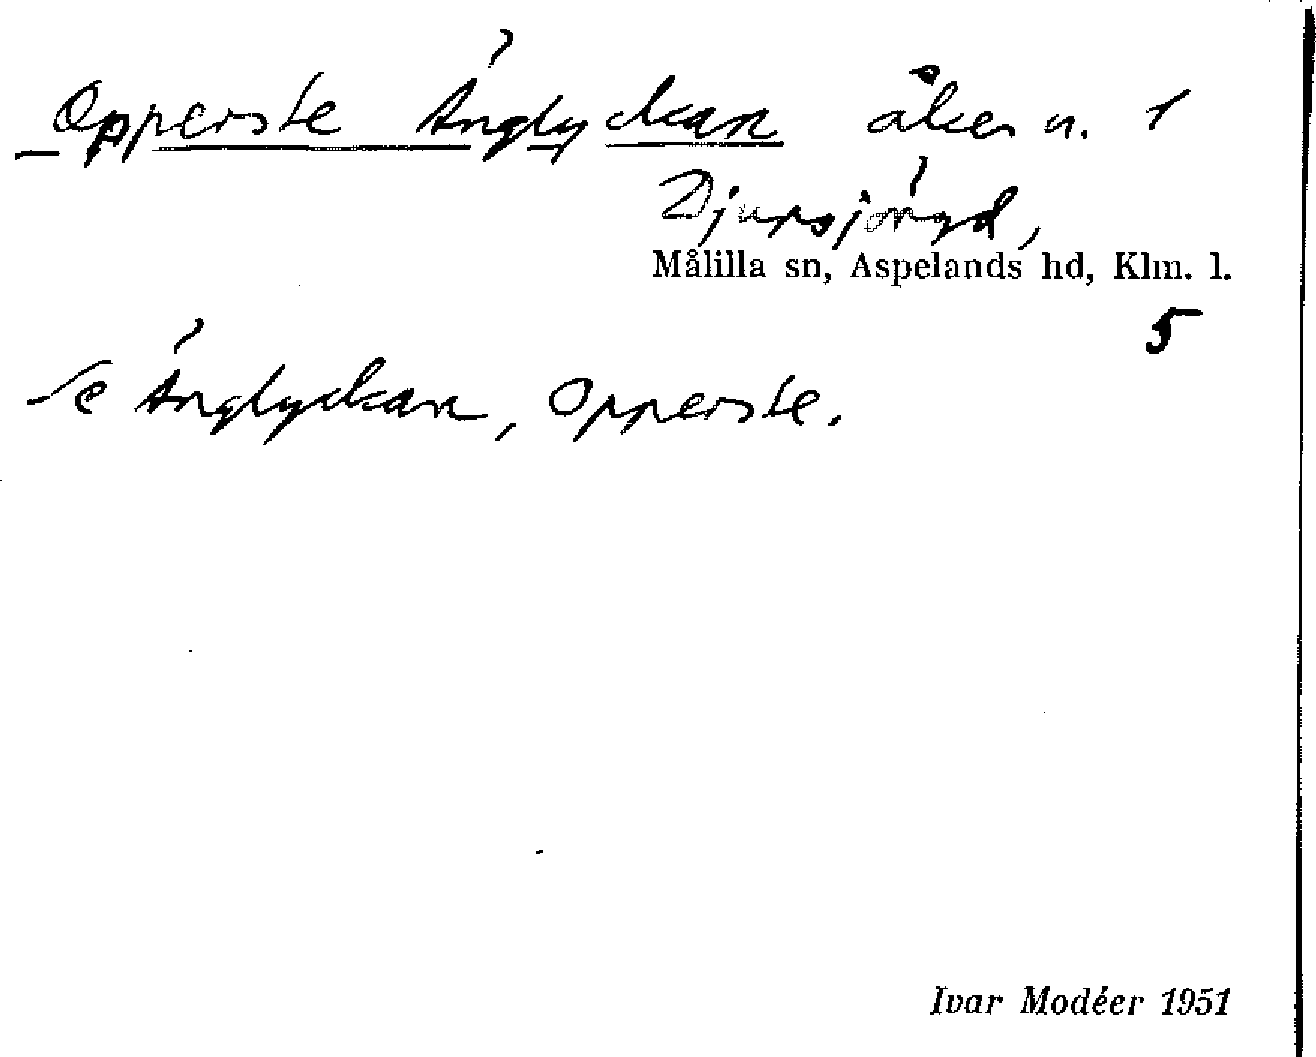 Opperste Änglyckan åker n. 1
Målilla sn, Aspelands hd, Klm. l.
5
Se Änglyckan, Opperste.
Ivar Modéer 1951